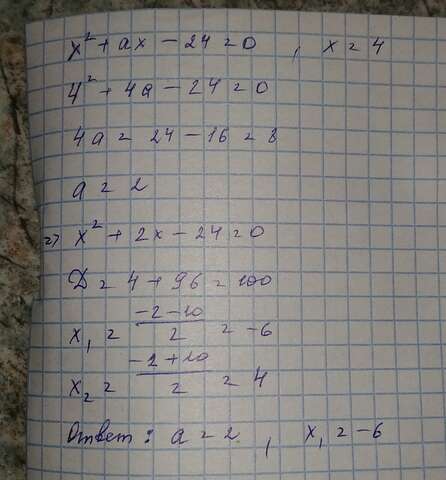 x² + ax - 24 = 0 , x = 4
4² + 4a - 24 = 0
4a = 24 - 16 = 8
a = 2
=> x² + 2x - 24 = 0
D = 4 + 96 = 100
x₁ = (-2-10)/2 = -6
x₂ = (-2+10)/2 = 4
Ответ: a = 2 , x₁ = -6